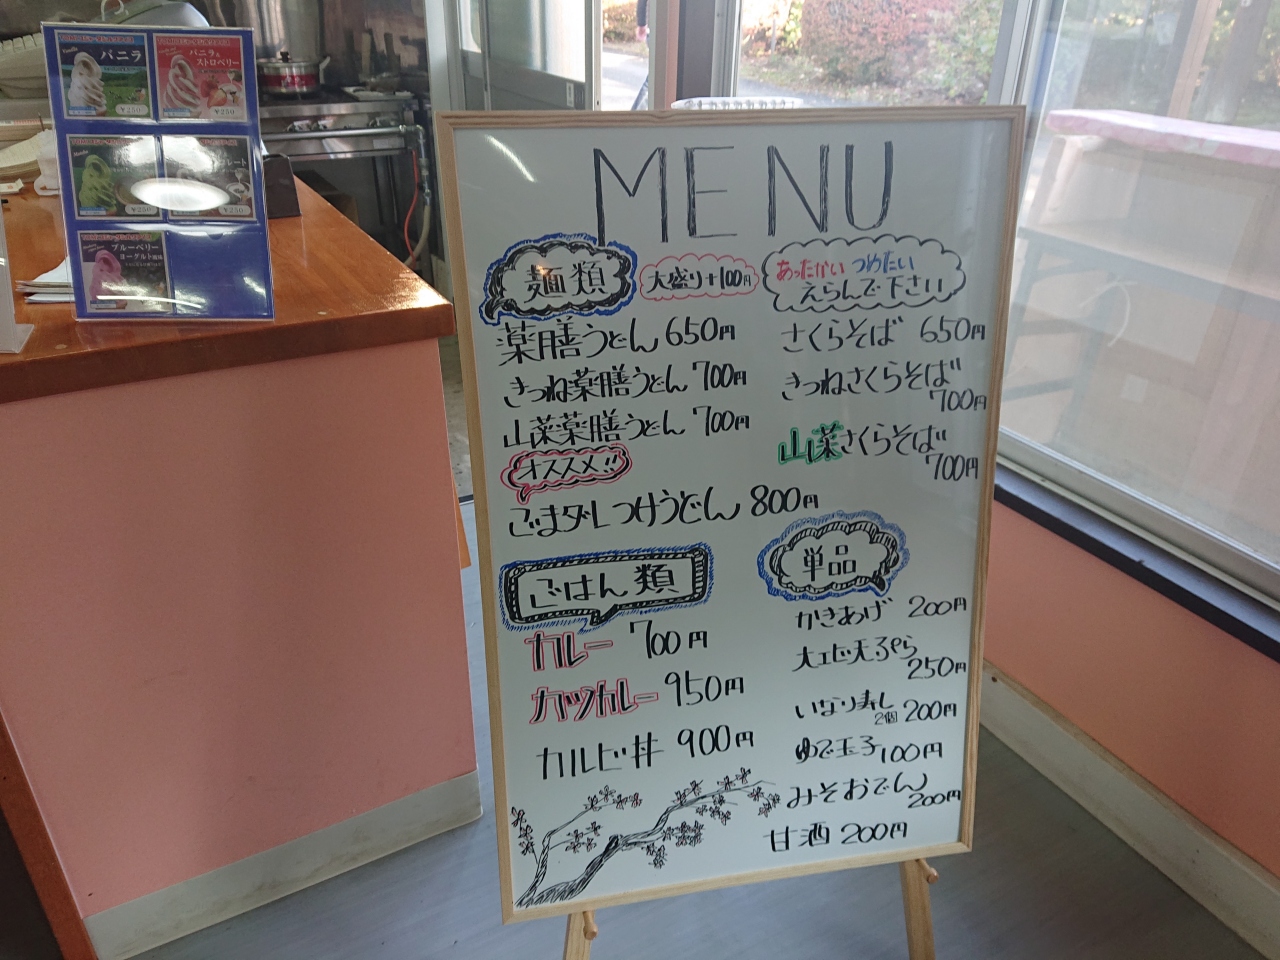 バニラ
¥250
バニラ&
ストロベリー
¥250
¥250
¥250
ブルーベリー
ヨーグルト風味
MENU
麺類
大盛り+100円
あったかい つめたい
えらんで下さい
薬膳うどん 650円
きつね薬膳うどん 700円
山菜薬膳うどん 700円
オススメ!!
ごまダレつけうどん 800円
さくらそば 650円
きつねさくらそば
700円
山菜さくらそば
700円
ごはん類
カレー 700円
カツカレー 950円
カルビ丼 900円
単品
かきあげ 200円
大エビ天ぷら
250円
いなり寿し
2個 200円
ゆで玉子 100円
みそおでん
200円
甘酒 200円